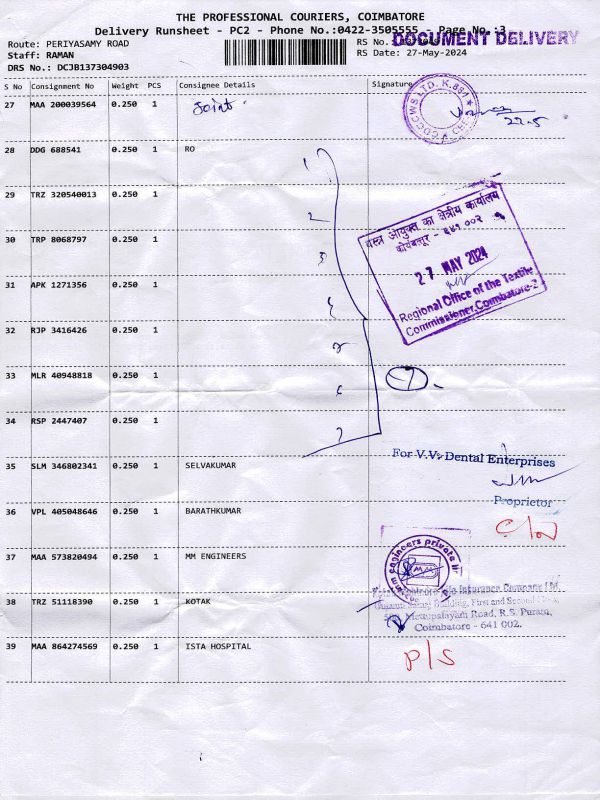 THE PROFESSIONAL COURIERS, COIMBATORE
Delivery Runsheet - PC2 - Phone No.:0422-3505555 - Page No.:3
DOCUMENT DELIVERY
Route: PERIYASAMY ROAD
RS No.:
Staff: RAMAN
RS Date: 27-May-2024
DRS No.: DCJB137304903
S No Consignment No Weight PCS Consignee Details Signature
27 MAA 200039564 0.250 1 Joint
22.5
28 DDG 688541 0.250 1 RO
1
29 TRZ 320540013 0.250 1
2
वस्त्र आयुक्त का क्षेत्रीय कार्यालय
कोयंबतूर - ६४१ ००२
30 TRP 8068797 0.250 1
3
27 MAY 2024
31 APK 1271356 0.250 1
Regional Office of the Textile
Commissioner, Coimbatore-2
32 RJP 3416426 0.250 1
33 MLR 40948818 0.250 1
7
34 RSP 2447407 0.250 1
7
For V.V. Dental Enterprises
35 SLM 346802341 0.250 1 SELVAKUMAR
Proprietor
36 VPL 405048646 0.250 1 BARATHKUMAR
37 MAA 573820494 0.250 1 MM ENGINEERS
engineers private
Life Insurance Company Ltd
38 TRZ 51118390 0.250 1 KOTAK
Building, First and Second Floor,
Mettupalayam Road, R.S. Puram,
Coimbatore - 641 002.
39 MAA 864274569 0.250 1 ISTA HOSPITAL
P/S